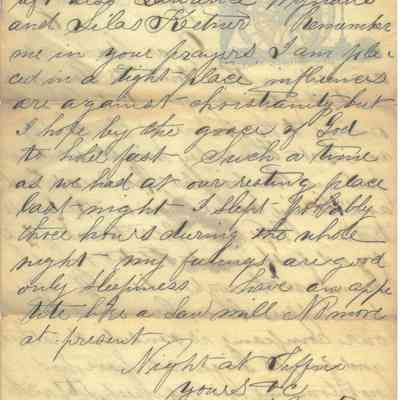 and Silas Keener Remember
me in your prayers I am pla
ced in a tight place influences
are against christianity but
I hope by the grace of God
to hold fast Such a time
as we had at our resting place
last night I slept probably
three hours during the whole
night my feelings are good
only sleepiness have an appe
tite like a saw mill No more
at present
Night at Tiffin
Yours &c